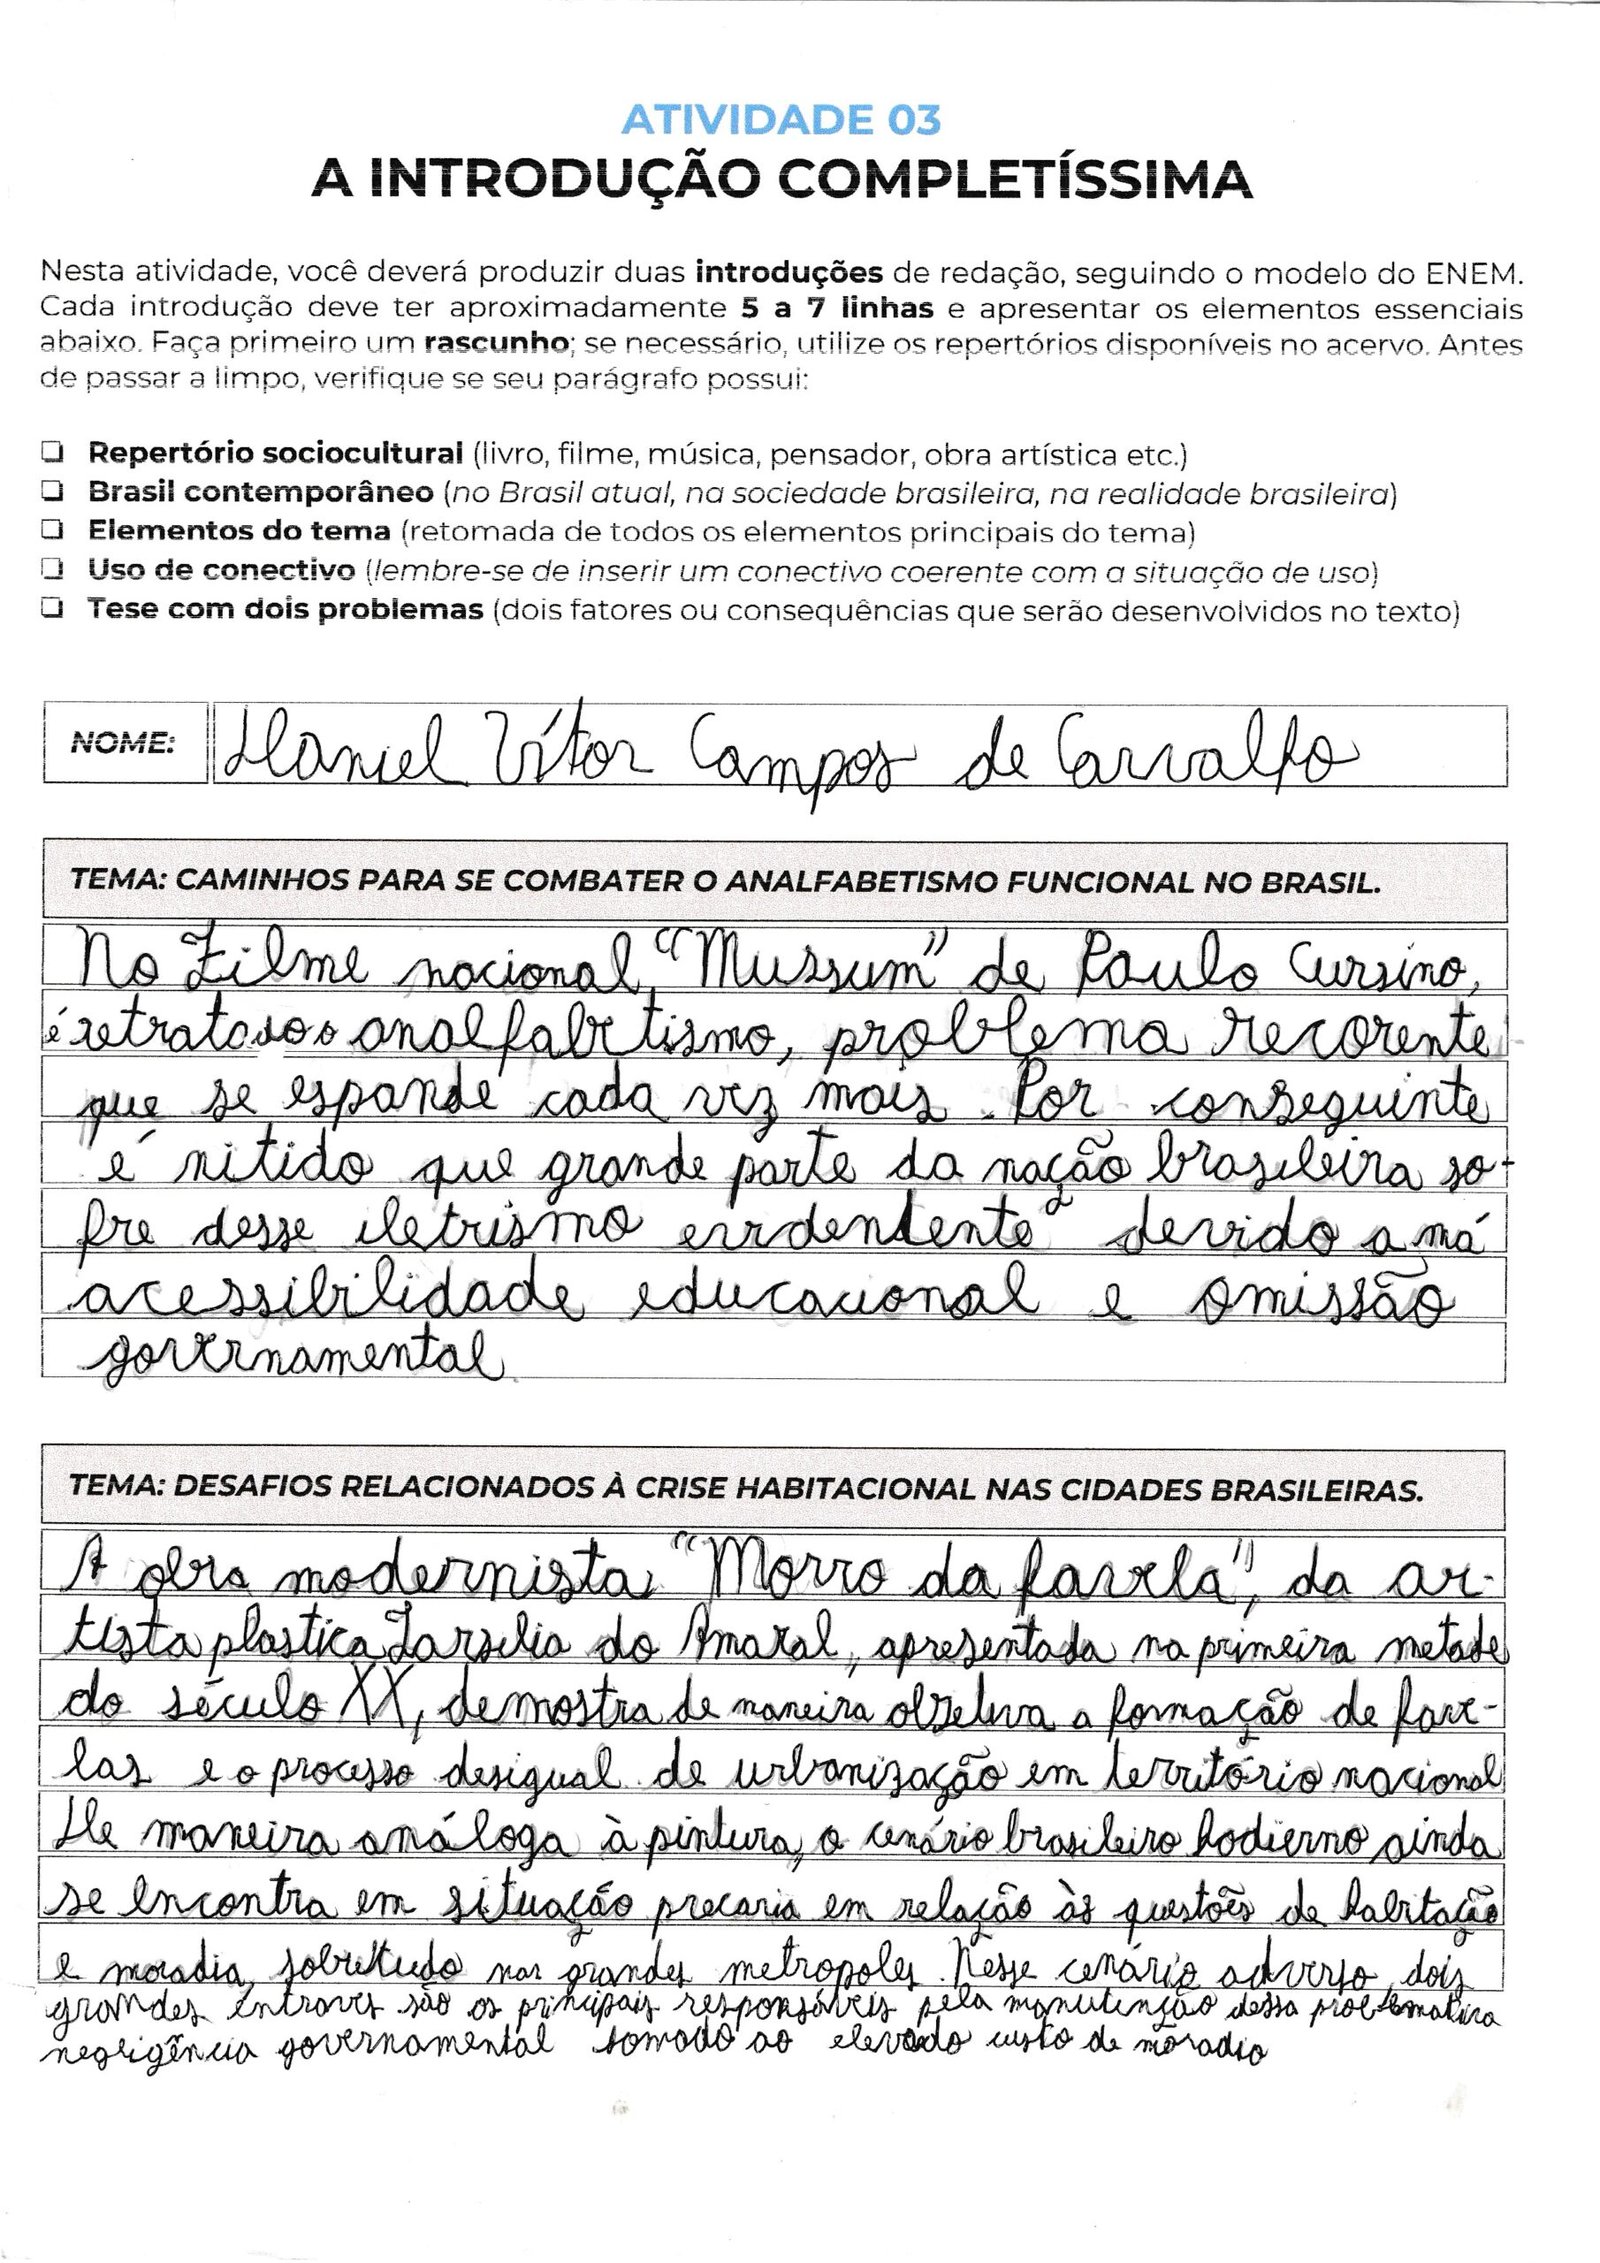 ATIVIDADE 03
A INTRODUÇÃO COMPLETÍSSIMA
Nesta atividade, você deverá produzir duas introduções de redação, seguindo o modelo do ENEM.
Cada introdução deve ter aproximadamente 5 a 7 linhas e apresentar os elementos essenciais
abaixo. Faça primeiro um rascunho; se necessário, utilize os repertórios disponíveis no acervo. Antes
de passar a limpo, verifique se seu parágrafo possui:
❏ Repertório sociocultural (livro, filme, música, pensador, obra artística etc.)
❏ Brasil contemporâneo (no Brasil atual, na sociedade brasileira, na realidade brasileira)
❏ Elementos do tema (retomada de todos os elementos principais do tema)
❏ Uso de conectivo (lembre-se de inserir um conectivo coerente com a situação de uso)
❏ Tese com dois problemas (dois fatores ou consequências que serão desenvolvidos no texto)
NOME: Daniel Vítor Campos de Carvalho
TEMA: CAMINHOS PARA SE COMBATER O ANALFABETISMO FUNCIONAL NO BRASIL.
No Filme nacional, "Mussum" de Paulo Cursino,
é retratado o analfabetismo, problema recorente
que se espande cada vez mais. Por conseguinte
é nitido que grande parte da nação brasileira so-
fre desse iletrismo devido a má
acessibilidade educacional e omissão
governamental
TEMA: DESAFIOS RELACIONADOS À CRISE HABITACIONAL NAS CIDADES BRASILEIRAS.
A obra modernista "Morro da favela", da ar-
tista plastica Tarsilia do Amaral, apresentada na primeira metade
do século XX, demostra de maneira objetiva a formação de fave-
las e o processo desigual de urbanização em território nacional
De maneira análoga à pintura, o cenário brasileiro hodierno ainda
se encontra em situação precaria em relação às questões de habitação
e moradia, sobretudo nas grandes metropoles. Nesse cenário adverso, dois
grandes entraves são os principais responsáveis pela manutenção dessa problematica
negligência governamental somado ao elevado custo de moradia